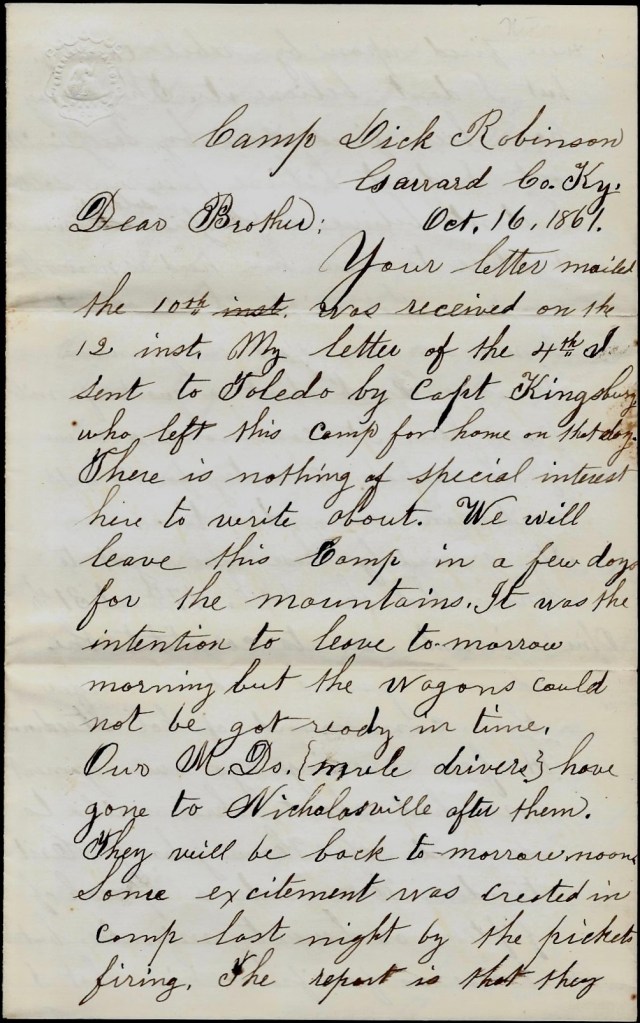 Camp Dick Robinson
Garrard Co. Ky.
Dear Brother: Oct. 16, 1861.
Your letter mailed
the 10th inst. was received on the
12 inst. My letter of the 4th I
sent to Toledo by Capt Kingsbury,
who left this camp for home on that day.
There is nothing of special interest
here to write about. We will
leave this Camp in a few days
for the mountains. It was the
intention to leave to-morrow
morning but the wagons could
not be got ready in time.
Our M.Ds. {mule drivers} have
gone to Nicholasville after them.
They will be back to-morrow noon.
Some excitement was created in
camp last night by the pickets
firing. The report is that they